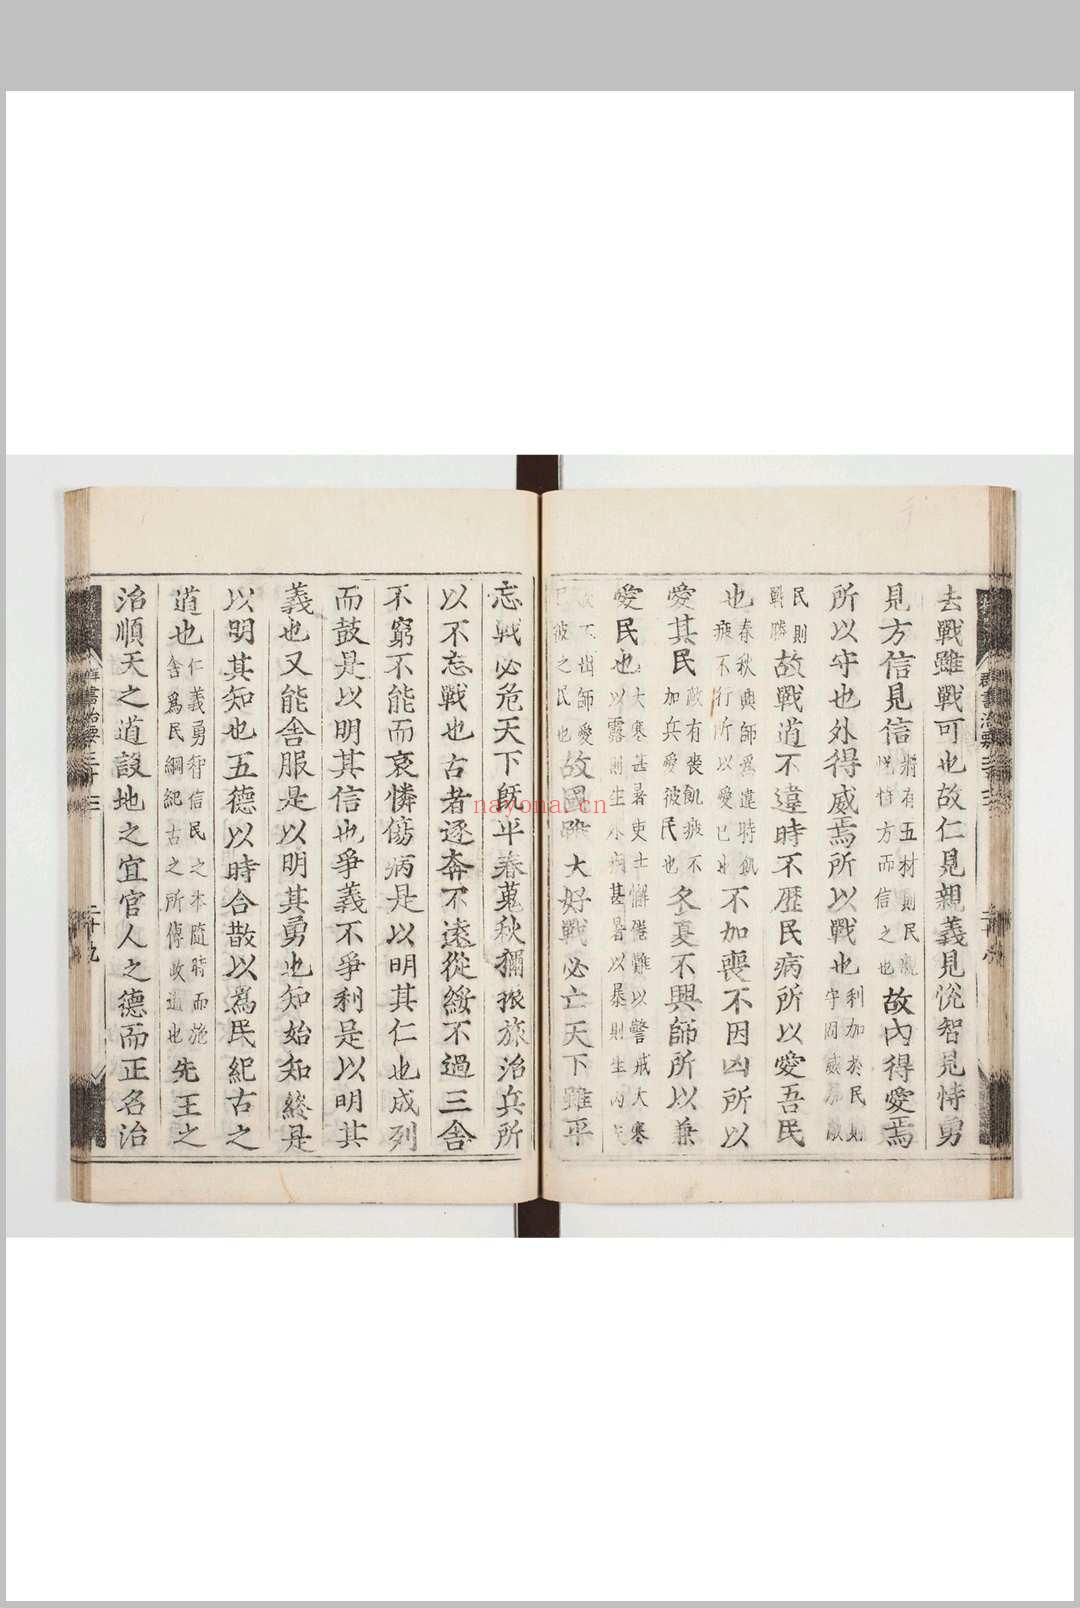 去戰雖戰可也故仁見親義見恱智見恃勇
見方信見信將有五材則民親恱恃方而信之也故內得愛焉
所以守也外得威焉所以戰也利加於民則守固威加敵
民則戰勝故戰道不違時不歷民病所以愛吾民
也春秋興師爲違時飢疲不行所以愛己也不加喪不因凶所以
愛其民敵有喪飢疲不加兵愛彼民也冬夏不興師所以兼
愛民也大寒甚暑吏士懈倦難以警戒大寒以露則生外病甚暑以暴則生內
不出師愛彼之民也故國雖大好戰必亡天下雖平
忘戰必危天下既平春蒐秋獮振旅治兵所
以不忘戰也古者逐奔不遠從綏不過三舎
不窮不能而哀憐傷病是以明其仁也成列
而鼓是以明其信也爭義不爭利是以明其
義也又能舎服是以明其勇也知始知終是
以明其知也五德以時合散以爲民紀古之
道也仁義勇智信民之本隨時而施舎爲民綱紀古之所傳政道也先王之
治順天之道設地之宜官人之德而正名治
群書治要三十三
二十九
nayona.cn